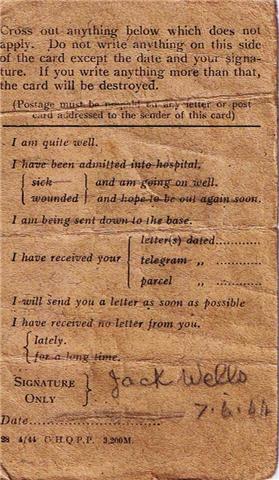 Cross out anything below which does not
apply. Do not write anything on this side
of the card except the date and your signa-
ture. If you write anything more than that,
the card will be destroyed.
(Postage must be prepaid on any letter or post
card addressed to the sender of this card)
I am quite well.
I have been admitted into hospital.
sick and am going on well.
wounded and hope to be out again soon.
I am being sent down to the base.
letter(s) dated............
I have received your telegram ,, ............
parcel ,, ............
I will send you a letter as soon as possible
I have received no letter from you.
lately.
for a long time.
SIGNATURE ONLY Jack Wells
7.6.44
Date
28 4/44 G.H.Q.P.P. 3,200M.